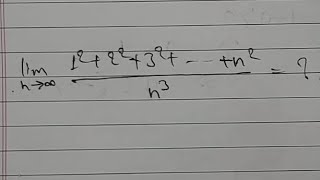 lim n→∞ (1² + 2² + 3² + ---- + n²) / n³ = ?